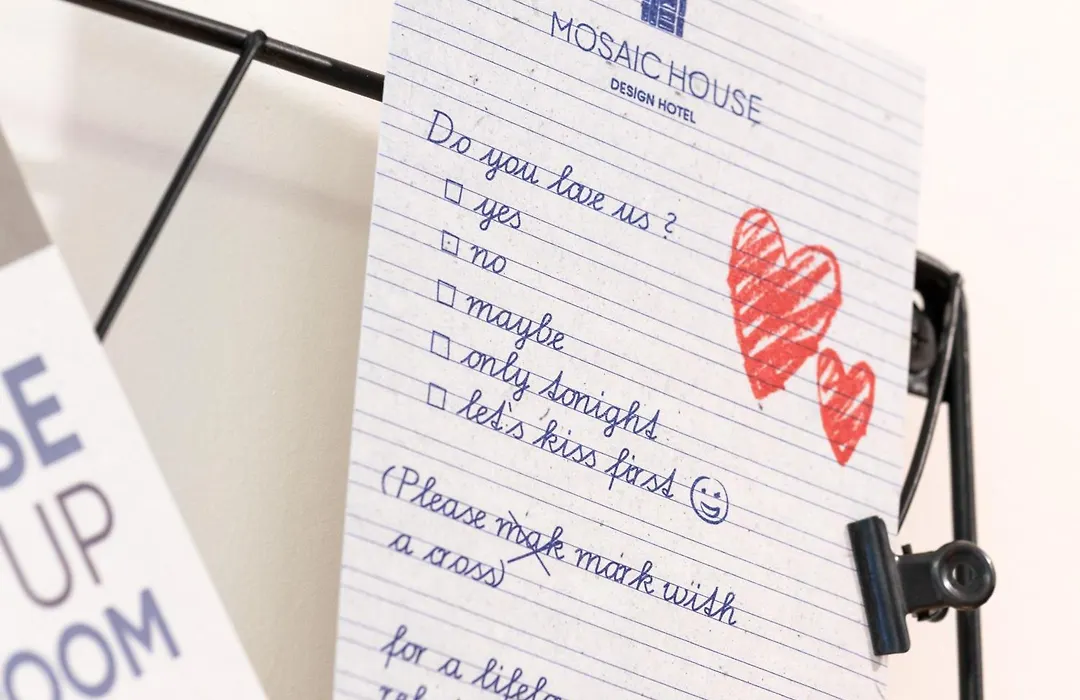 MOSAIC HOUSE
DESIGN HOTEL
Do you love us ?
yes
no
maybe
only tonight
let's kiss first
(Please mak mark with
a cross)
for a
SE
UP
OOM